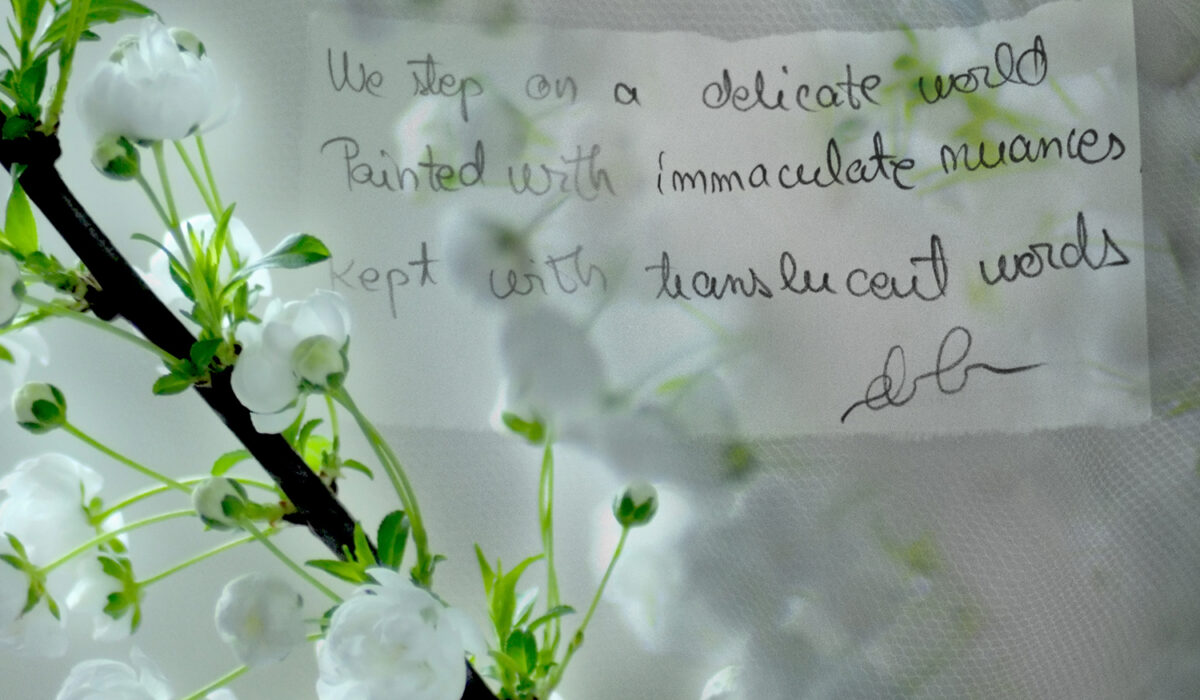 We step on a delicate world
Painted with immaculate nuances
kept with translucent words